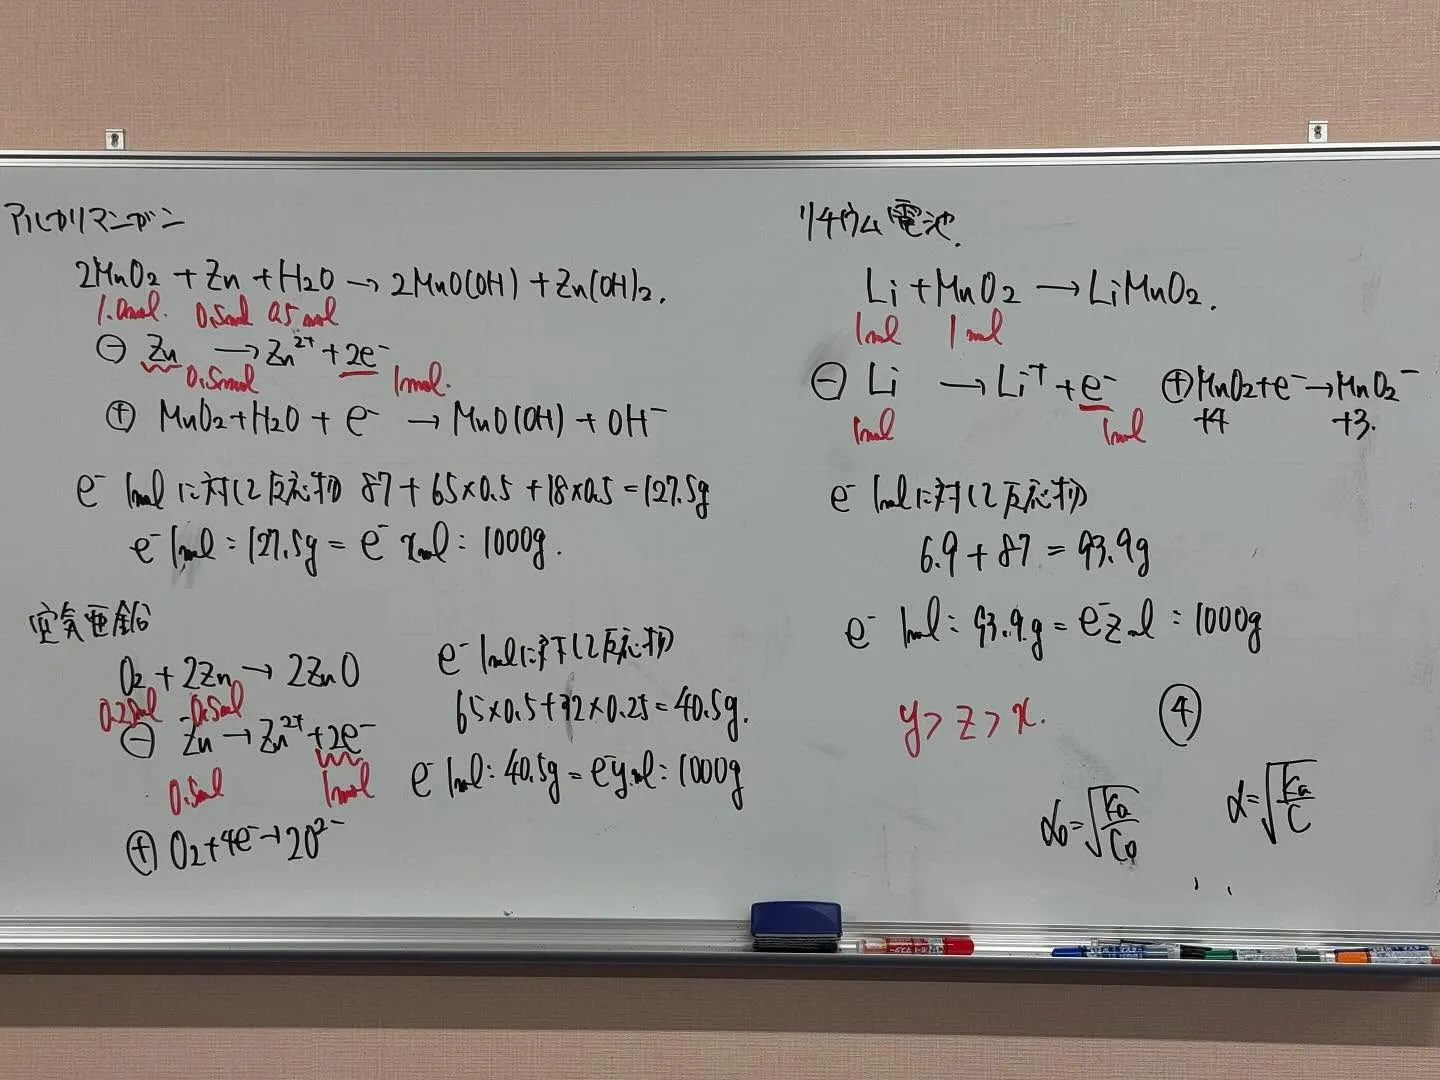 アルカリマンガン
2MnO2 + Zn + H2O → 2MnO(OH) + Zn(OH)2.
1.0mol. 0.5mol 0.5mol
⊖ Zn → Zn2+ + 2e-
0.5mol 1mol.
⊕ MnO2+H2O + e- → MnO(OH) + OH-
e- 1molに対して反応物 87+65×0.5+18×0.5=127.5g
e- 1mol:127.5g = e- xmol:1000g.
空気亜鉛
O2 + 2Zn → 2ZnO
0.25mol 0.5mol
⊖ Zn → Zn2+ + 2e-
0.5mol 1mol
⊕ O2+4e-→2O2-
e- 1molに対して反応物
65×0.5+32×0.25=40.5g.
e- 1mol:40.5g = e-ymol:1000g
リチウム電池.
Li + MnO2 → LiMnO2.
1mol 1mol
⊖ Li → Li+ + e- ⊕ MnO2+e-→MnO2-
1mol 1mol +4 +3.
e- 1molに対して反応物
6.9+87=93.9g
e- 1mol:93.9g = e-zmol:1000g
y>z>x. ④
α0=√Ka/C0 α=√Ka/C